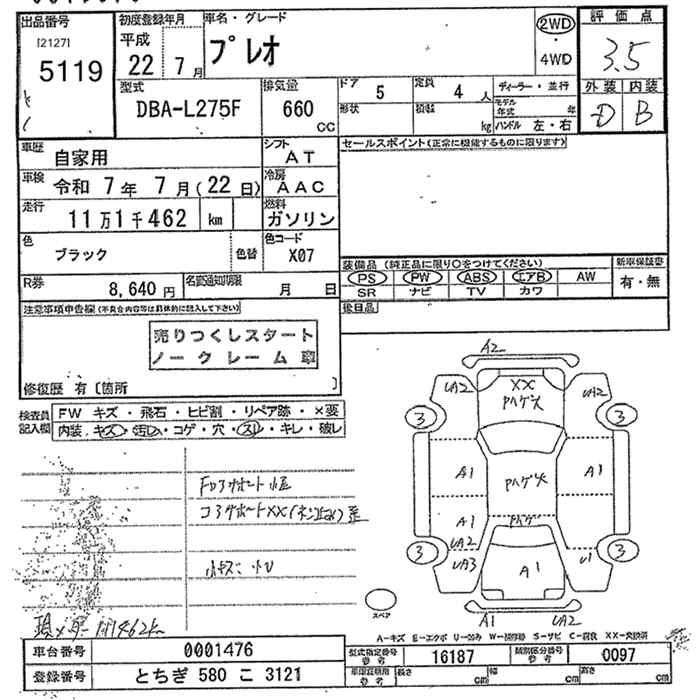 出品番号 初度登録年月 車名・グレード 2WD 評価点
[2127] 平成 プレオ ・ 3.5
5119 22 7月 4WD
型式 排気量 ドア 5 定員 4人 ディーラー・並行 外装 内装
DBA-L275F 660 CC 形状 積載 kg モデル年式 年 D B
ハンドル 左・右
車歴 自家用 シフト AT セールスポイント(正常に機能するものに限ります)
車検 令和 7年 7月(22日) 冷房 AAC
走行 11万1千462 km 燃料 ガソリン
色 ブラック 色替 色コード X07
装備品(純正品に限り○をつけてください) 新車保証書
R券 8,640円 名変通知期限 月 日 PS PW ABS エアB AW 有・無
SR ナビ TV カワ
注意事項申告欄(不具合内容等は具体的に記入して下さい) 後日品
売りつくしスタート
ノークレーム
修復歴 有〔箇所 〕
検査員記入欄 FW キズ・飛石・ヒビ割・リペア跡・×要
内装.キズ・汚レ・コゲ・穴・スレ・キレ・破レ
A2
UA2 XX UA2
Pハゲ大
3 3
A1 Pハゲ大 A1
A1 Pハゲ
UA2
3 UA3 A1 U1 3
スペア
A1 UA2
A-キズ E-エクボ U-凹み W-補修跡 S-サビ C-腐食 XX-交換済
車台番号 0001476 型式指定番号 参考 16187 類別区分番号 参考 0097
登録番号 とちぎ 580 こ 3121 車庫証明用 参考 長さ cm 幅 cm 高さ cm